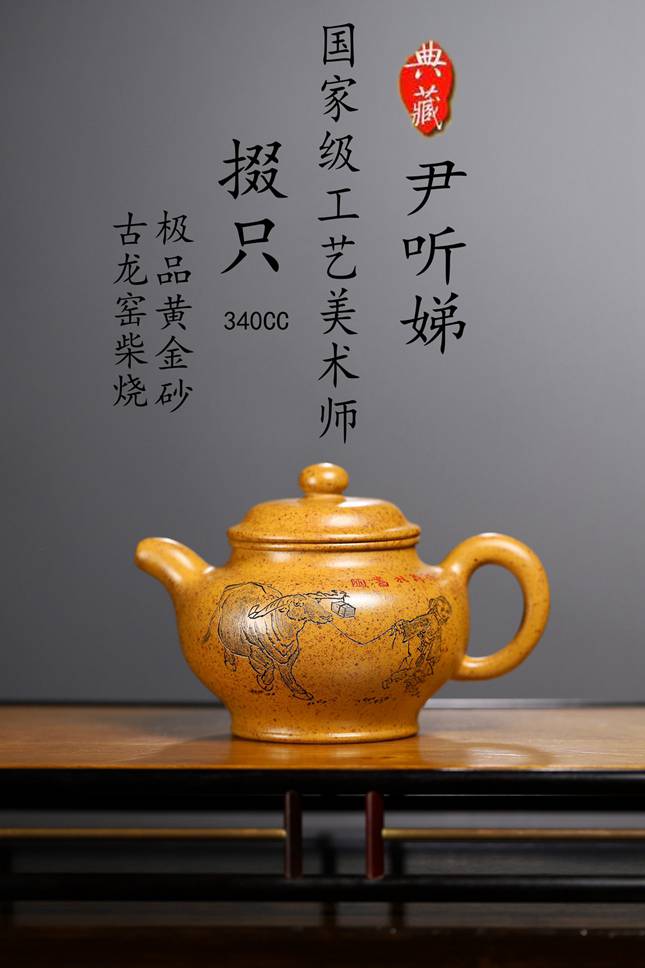 典藏
尹听娣
国家级工艺美术师
掇只
340CC
极品黄金砂
古龙窑柴烧